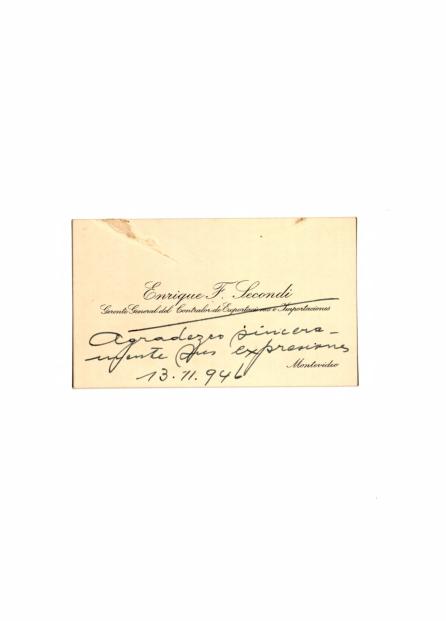 Enrique F. Secondi
Gerente General del Contralor de Exportaciones e Importaciones
Agradezco sincera-
mente sus expresiones
Montevideo
13.11.946